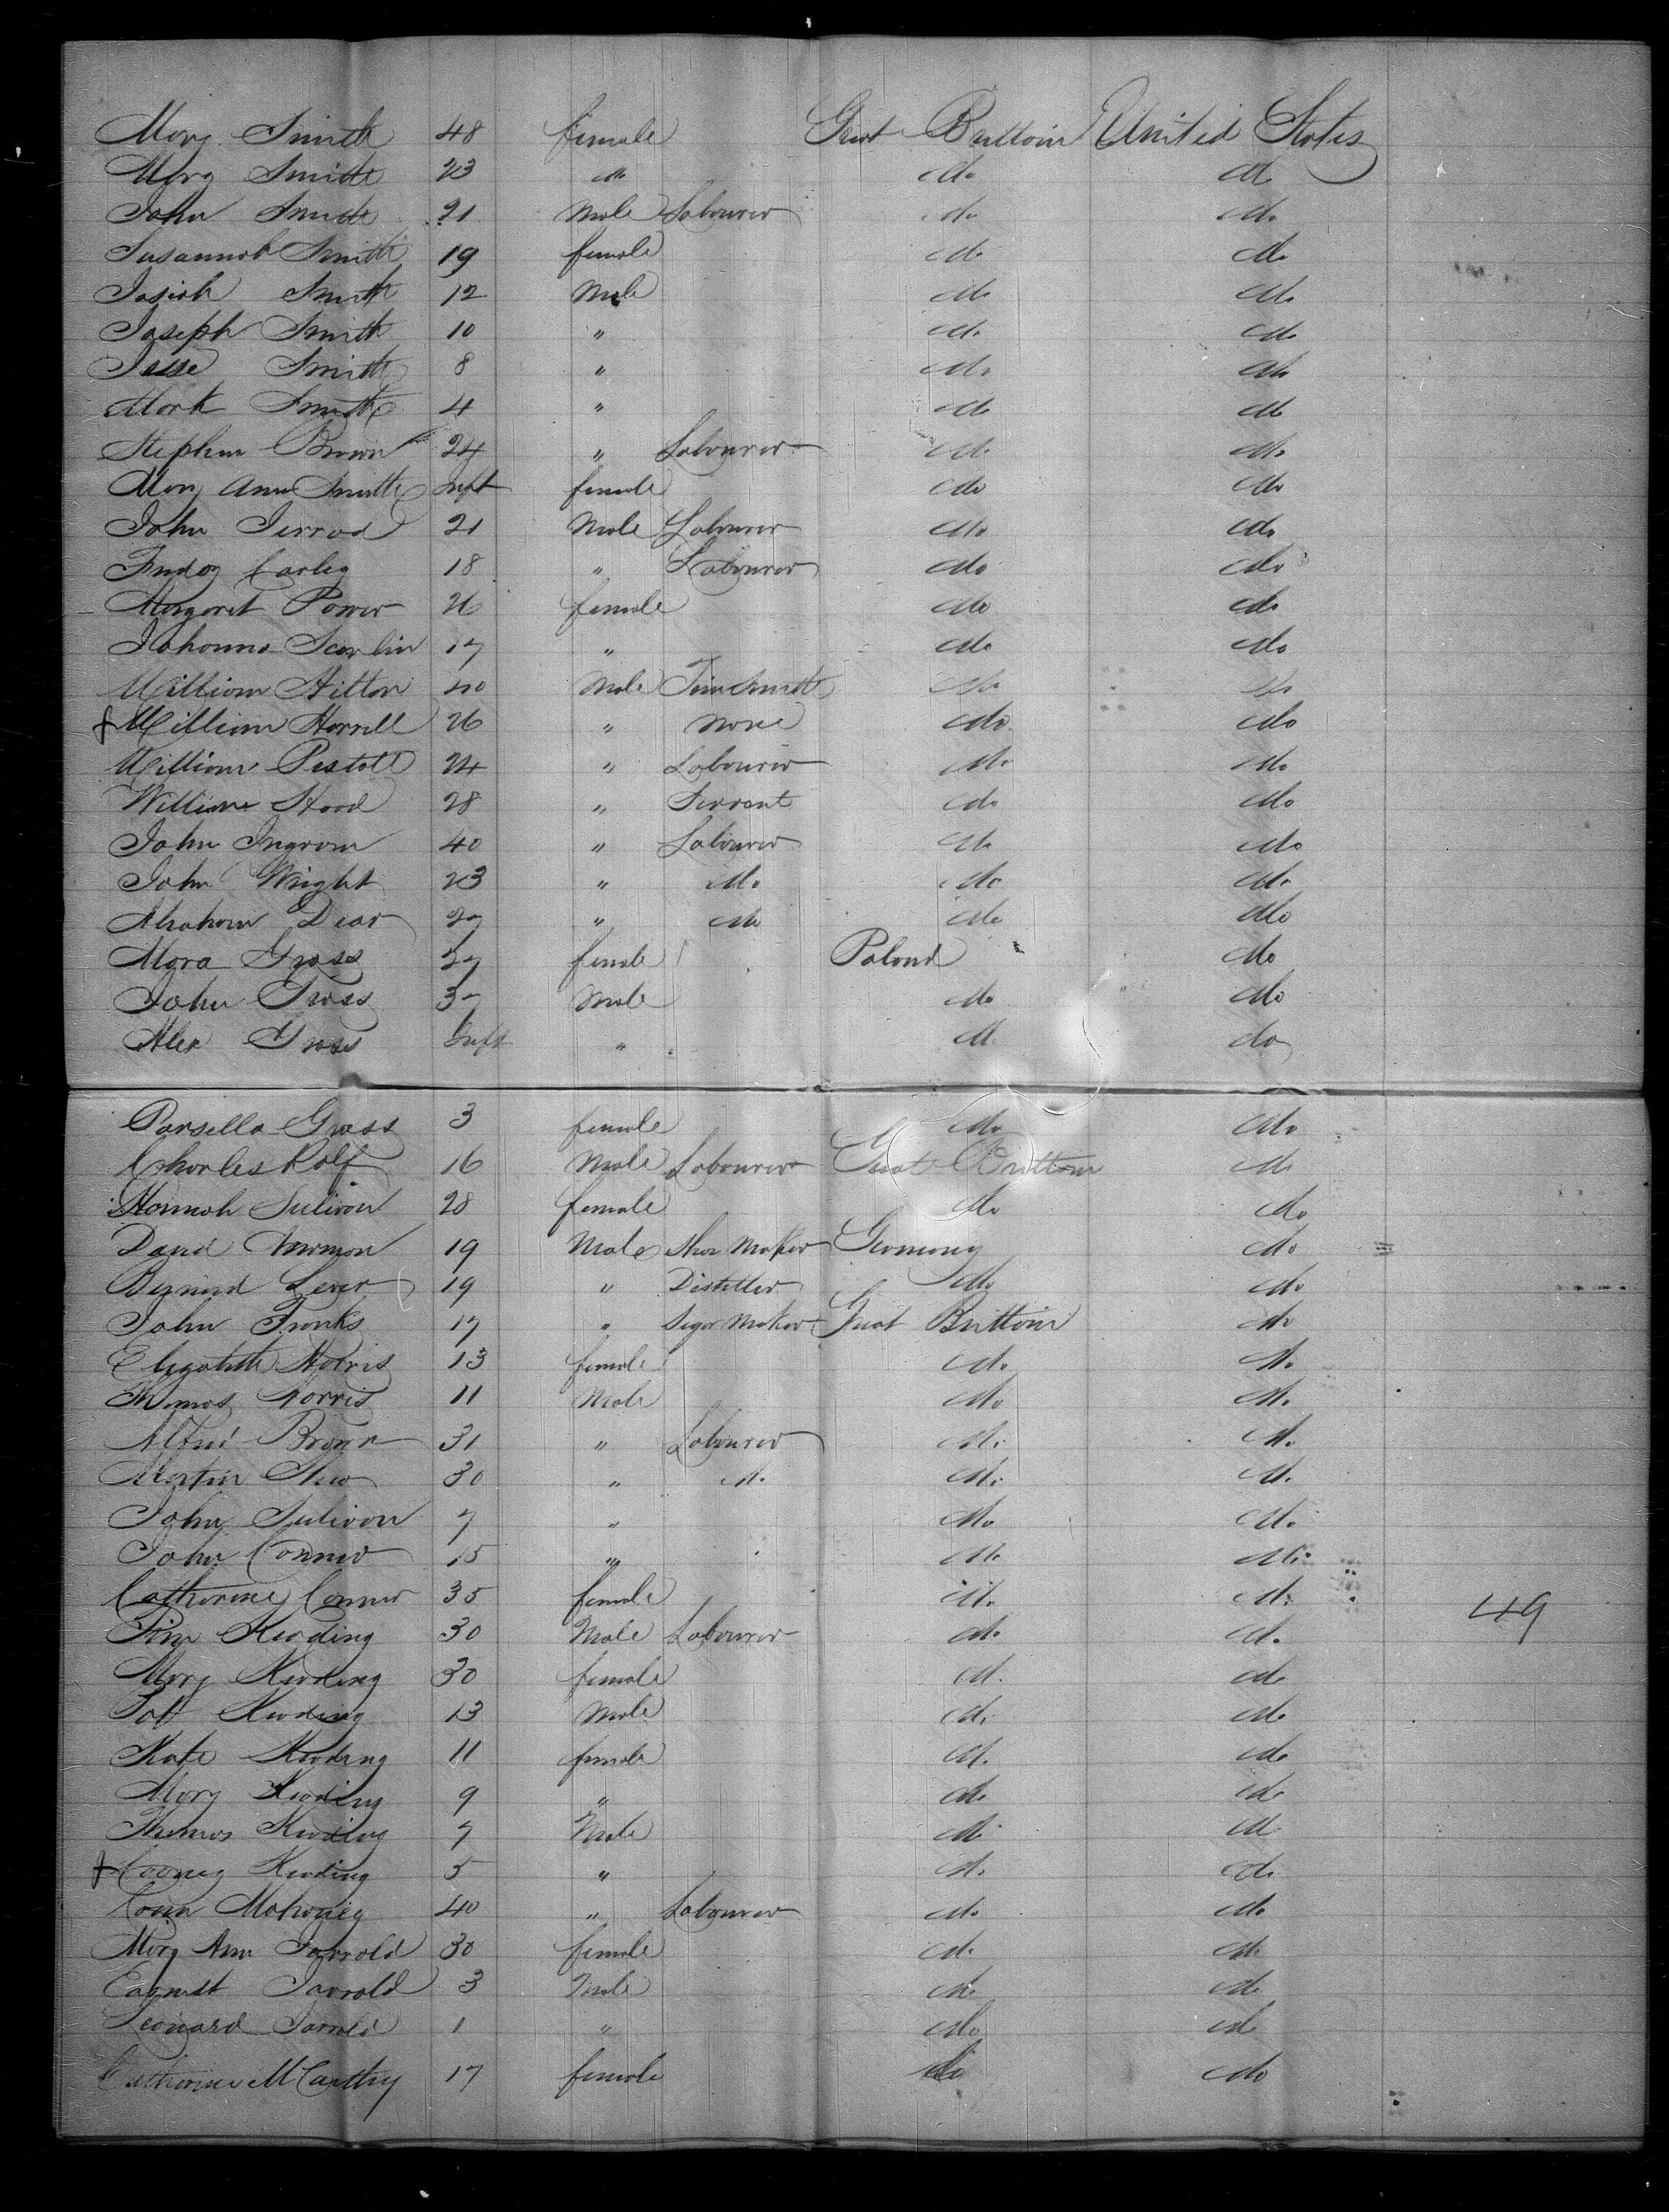 Mary Smith 48 female Great Brittain United States
Mary Smith 23 do do do
John Smith 21 Male Labourer do do
Susannah Smith 19 female do do
Josiah Smith 12 Male do do
Joseph Smith 10 " do do
Jesse Smith 8 " do do
Mark Smith 4 " do do
Stephen Brown 24 " Labourer do do
Mary Ann Smith Inft female do do
John Jerrod 21 Male Labourer do do
Carley 18 " Labourer do do
Margaret Power 26 female do do
Johanna Scanlin 17 " do do
William Hilton 40 Male Tinsmith do do
William Harrell 26 " none do do
William Pestell 24 " Labourer do do
William Hood 28 " Servant do do
John Ingram 40 " Labourer do do
John Wright 23 " do do do
Abraham Dear 27 " do do do
Mara Gross 27 female Poland do
John Gross 37 Male do do
Alex Gross Inft " do do
Parsella Gross 3 female do do
Charles Rolf 16 Male Labourer Great Brittain do
Hannah Sulivan 28 female do do
David 19 Male Shoe Maker Germany do
Bernard Lever 19 " Distiller do do
John Franks 17 " Segar Maker Great Brittain do
Elizabeth Morris 13 female do do
Thomas Morris 11 Male do do
Alfred Brown 31 " Labourer do do
Martin Shea 30 " do do do
John Sulivan 7 " do do
John Conner 15 " do do
Catherine Conner 35 female do do
30 Male Labourer do do 49
Mary Keading 30 female do do
Pat Keading 13 Male do do
Kate Keading 11 female do do
Mary Keading 9 " do do
Thomas Keading 7 Male do do
Keading 5 " do do
Mahoney 40 " Labourer do do
Mary Ann Jarrold 30 female do do
Earnest Jarrold 3 Male do do
Leonard Jarrold 1 " do do
Catherine McCarthy 17 female do do